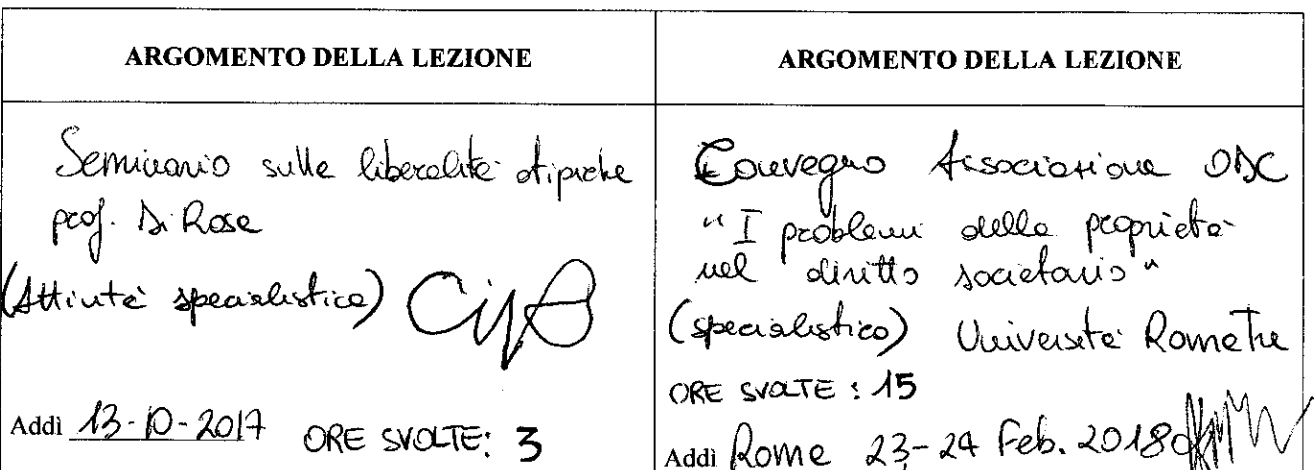 ARGOMENTO DELLA LEZIONE
Seminario sulle liberalità atipiche
prof. Di Rosa
(Attività specialistica)
Addì 13-10-2017 ORE SVOLTE: 3
ARGOMENTO DELLA LEZIONE
Convegno Associazione ODC
"I problemi della proprietà
nel diritto societario"
(specialistico) Università Roma Tre
ORE SVOLTE : 15
Addì Roma 23-24 Feb. 2018